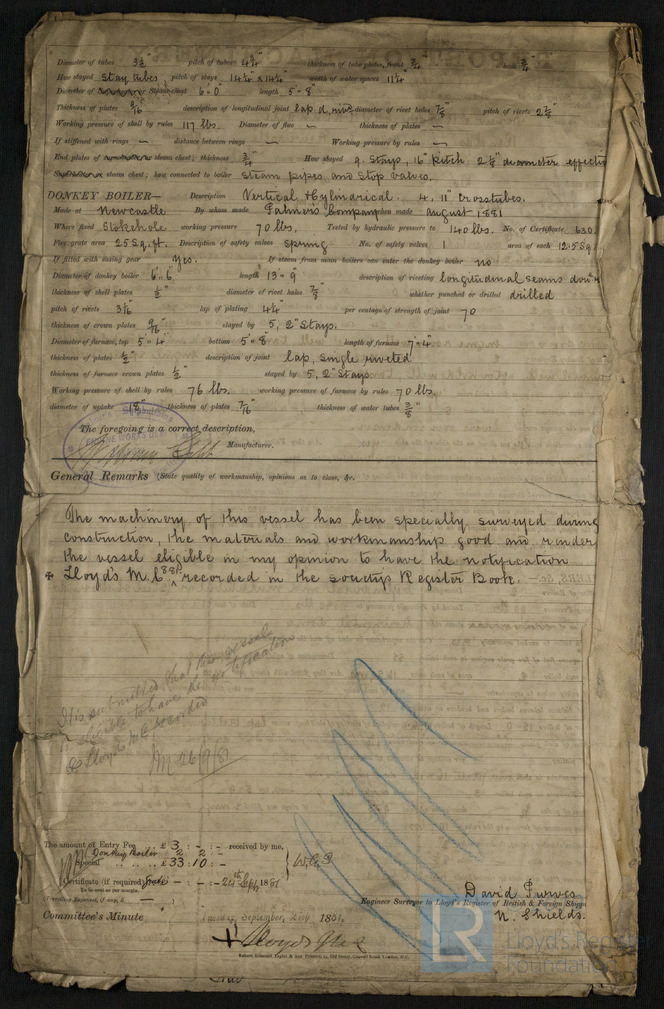 Diameter of tubes 3½" pitch of tubes 4¾" thickness of tube plates, front ¾" ¾"
How stayed stay tubes, pitch of stays 14¼" x 14¼" width of water spaces 11¼"
Diameter of steam chest 6-0" length 5-8"
Thickness of plates 9/16" description of longitudinal joint lap d. riv. diameter of rivet holes 7/8" pitch of rivets 2½"
Working pressure of shell by rules 117 lbs. Diameter of flue — thickness of plates —
If stiffened with rings — distance between rings — Working pressure by rules —
End plates of steam chest; thickness ¾" How stayed 9. Stays, 16" pitch 2½" diameter effectiv
steam chest; how connected to boiler Steam pipes, and Stop valves.
DONKEY BOILER— Description Vertical Cylindrical. 4, 11" crosstubes.
Made at Newcastle By whom made Palmer's Company when made August 1881
Where fixed Stokehole working pressure 70 lbs. Tested by hydraulic pressure to 140 lbs. No. of Certificate 630
Fire grate area 25 Sq. ft. Description of safety valves Spring No. of safety valves 1 area of each 12.5 Sq
If fitted with easing gear Yes. If steam from main boilers can enter the donkey boiler no
Diameter of donkey boiler 6'-6" length 13-9" description of riveting longitudinal seams doub
thickness of shell plates ½" diameter of rivet holes 7/8" whether punched or drilled drilled
pitch of rivets 3⅛" lap of plating 4¼" per centage of strength of joint 70
thickness of crown plates 9/16" stayed by 5, 2" Stays.
Diameter of furnace, top 5-4" bottom 5-8" length of furnace 7-4"
thickness of plates ½" description of joint lap, single riveted
thickness of furnace crown plates ½" stayed by 5, 2" Stays
Working pressure of shell by rules 76 lbs. working pressure of furnace by rules 70 lbs.
diameter of uptake 18" thickness of plates 7/16" thickness of water tubes ⅜"
The foregoing is a correct description,
Manufacturer.
General Remarks (State quality of workmanship, opinions as to class, &c.
The machinery of this vessel has been specially surveyed during
construction, the materials and workmanship good and render
the vessel eligible in my opinion to have the notification
✠ Lloyd's M.C. 8.81. recorded in the Society's Register Book.
It is submitted that this vessel
is eligible to have the notification
✠ Lloyd's MC recorded
26/9/81
The amount of Entry Fee £ 3 : - : - received by me,
Donkey Boiler 2 : 2 : -
Special £ 33 : 10 : -
Certificate (if required) - : - : - 24th Sept, 1881
To be sent as per margin.
(Travelling Expenses, if any, £ )
David Purves
Engineer Surveyor to Lloyd's Register of British & Foreign Shipp
N. Shields.
Committee's Minute Tuesday, September, 27th 1881.
✠ Lloyds M.C.
LR
Lloyd's Register
Foundation